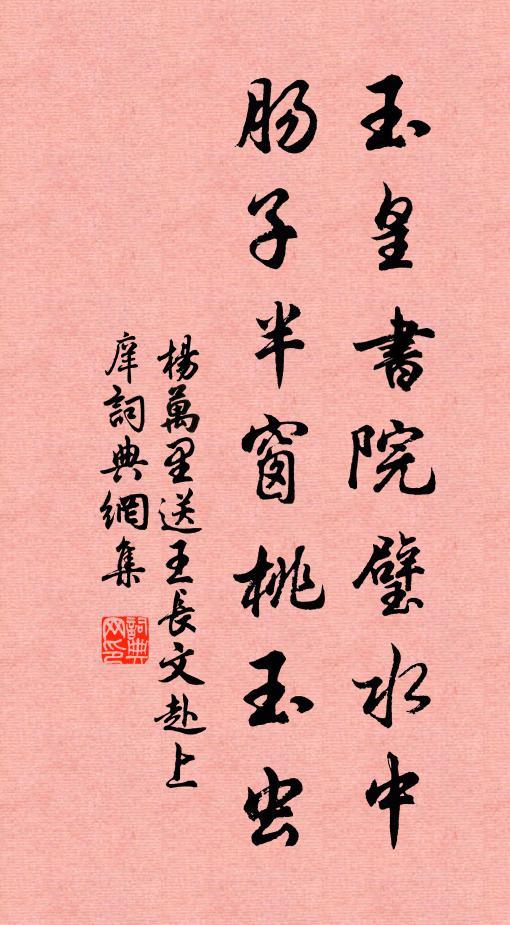 玉皇書院璧水中
肠子半窗桃玉虫
楊萬里送王長文赴上
庠詞典網集
詞典网印